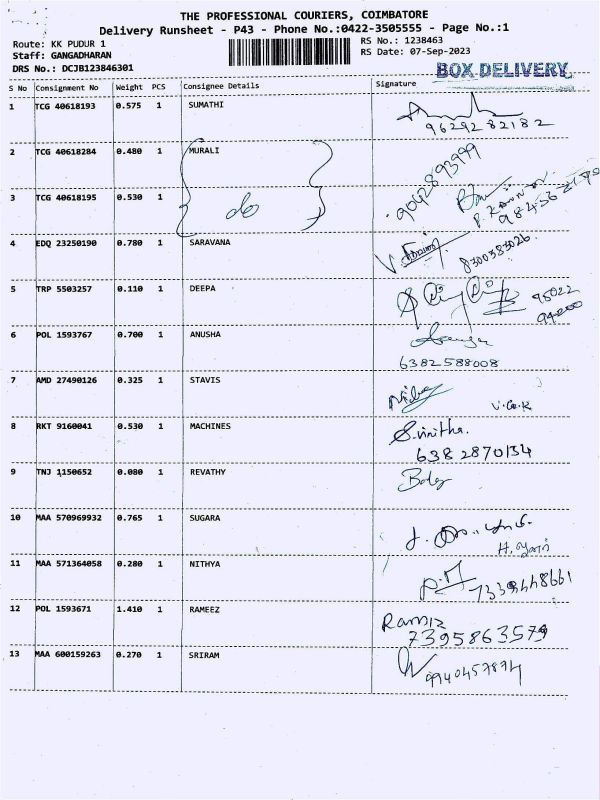 THE PROFESSIONAL COURIERS, COIMBATORE
Delivery Runsheet - P43 - Phone No.:0422-3505555 - Page No.:1
Route: KK PUDUR 1 RS No.: 1238463
Staff: GANGADHARAN RS Date: 07-Sep-2023
DRS No.: DCJB123846301 BOX DELIVERY
S No Consignment No Weight PCS Consignee Details Signature
1 TCG 40618193 0.575 1 SUMATHI
9629282182
2 TCG 40618284 0.480 1 MURALI 9042893999
3 TCG 40618195 0.530 1 do
4 EDQ 23250190 0.780 1 SARAVANA 8300383026
5 TRP 5503257 0.110 1 DEEPA 95022
94200
6 POL 1593767 0.700 1 ANUSHA
6382588008
7 AMD 27490126 0.325 1 STAVIS
8 RKT 9160041 0.530 1 MACHINES S.vinitha.
6382870134
9 TNJ 1150652 0.080 1 REVATHY
10 MAA 570969932 0.765 1 SUGARA
11 MAA 571364058 0.280 1 NITHYA
12 POL 1593671 1.410 1 RAMEEZ Ramiz
7395863579
13 MAA 600159263 0.270 1 SRIRAM
9940457874